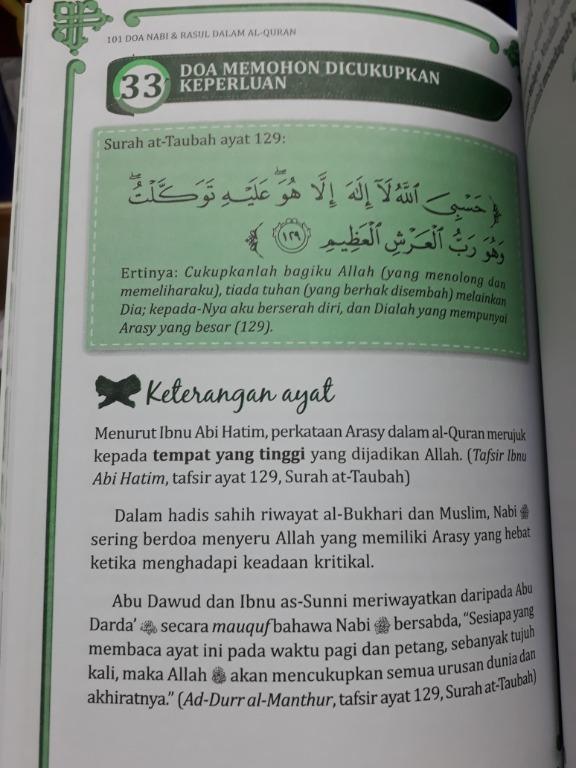 101 DOA NABI & RASUL DALAM AL-QURAN
33
DOA MEMOHON DICUKUPKAN
KEPERLUAN
Surah at-Taubah ayat 129:
﴿حَسْبِيَ ٱللَّهُ لَآ إِلَٰهَ إِلَّا هُوَۖ عَلَيْهِ تَوَكَّلْتُۖ
وَهُوَ رَبُّ ٱلْعَرْشِ ٱلْعَظِيمِ ١٢٩﴾
Ertinya: Cukupkanlah bagiku Allah (yang menolong dan
memeliharaku), tiada tuhan (yang berhak disembah) melainkan
Dia; kepada-Nya aku berserah diri, dan Dialah yang mempunyai
Arasy yang besar (129).
Keterangan ayat
Menurut Ibnu Abi Hatim, perkataan Arasy dalam al-Quran merujuk
kepada tempat yang tinggi yang dijadikan Allah. (Tafsir Ibnu
Abi Hatim, tafsir ayat 129, Surah at-Taubah)
Dalam hadis sahih riwayat al-Bukhari dan Muslim, Nabi ﷺ
sering berdoa menyeru Allah yang memiliki Arasy yang hebat
ketika menghadapi keadaan kritikal.
Abu Dawud dan Ibnu as-Sunni meriwayatkan daripada Abu
Darda' secara mauquf bahawa Nabi ﷺ bersabda, "Sesiapa yang
membaca ayat ini pada waktu pagi dan petang, sebanyak tujuh
kali, maka Allah akan mencukupkan semua urusan dunia dan
akhiratnya." (Ad-Durr al-Manthur, tafsir ayat 129, Surah at-Taubah)